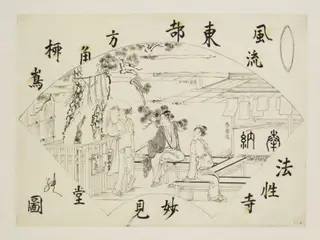 風流
東都方角
柳嶌
奉納
法性寺
妙見堂
圖